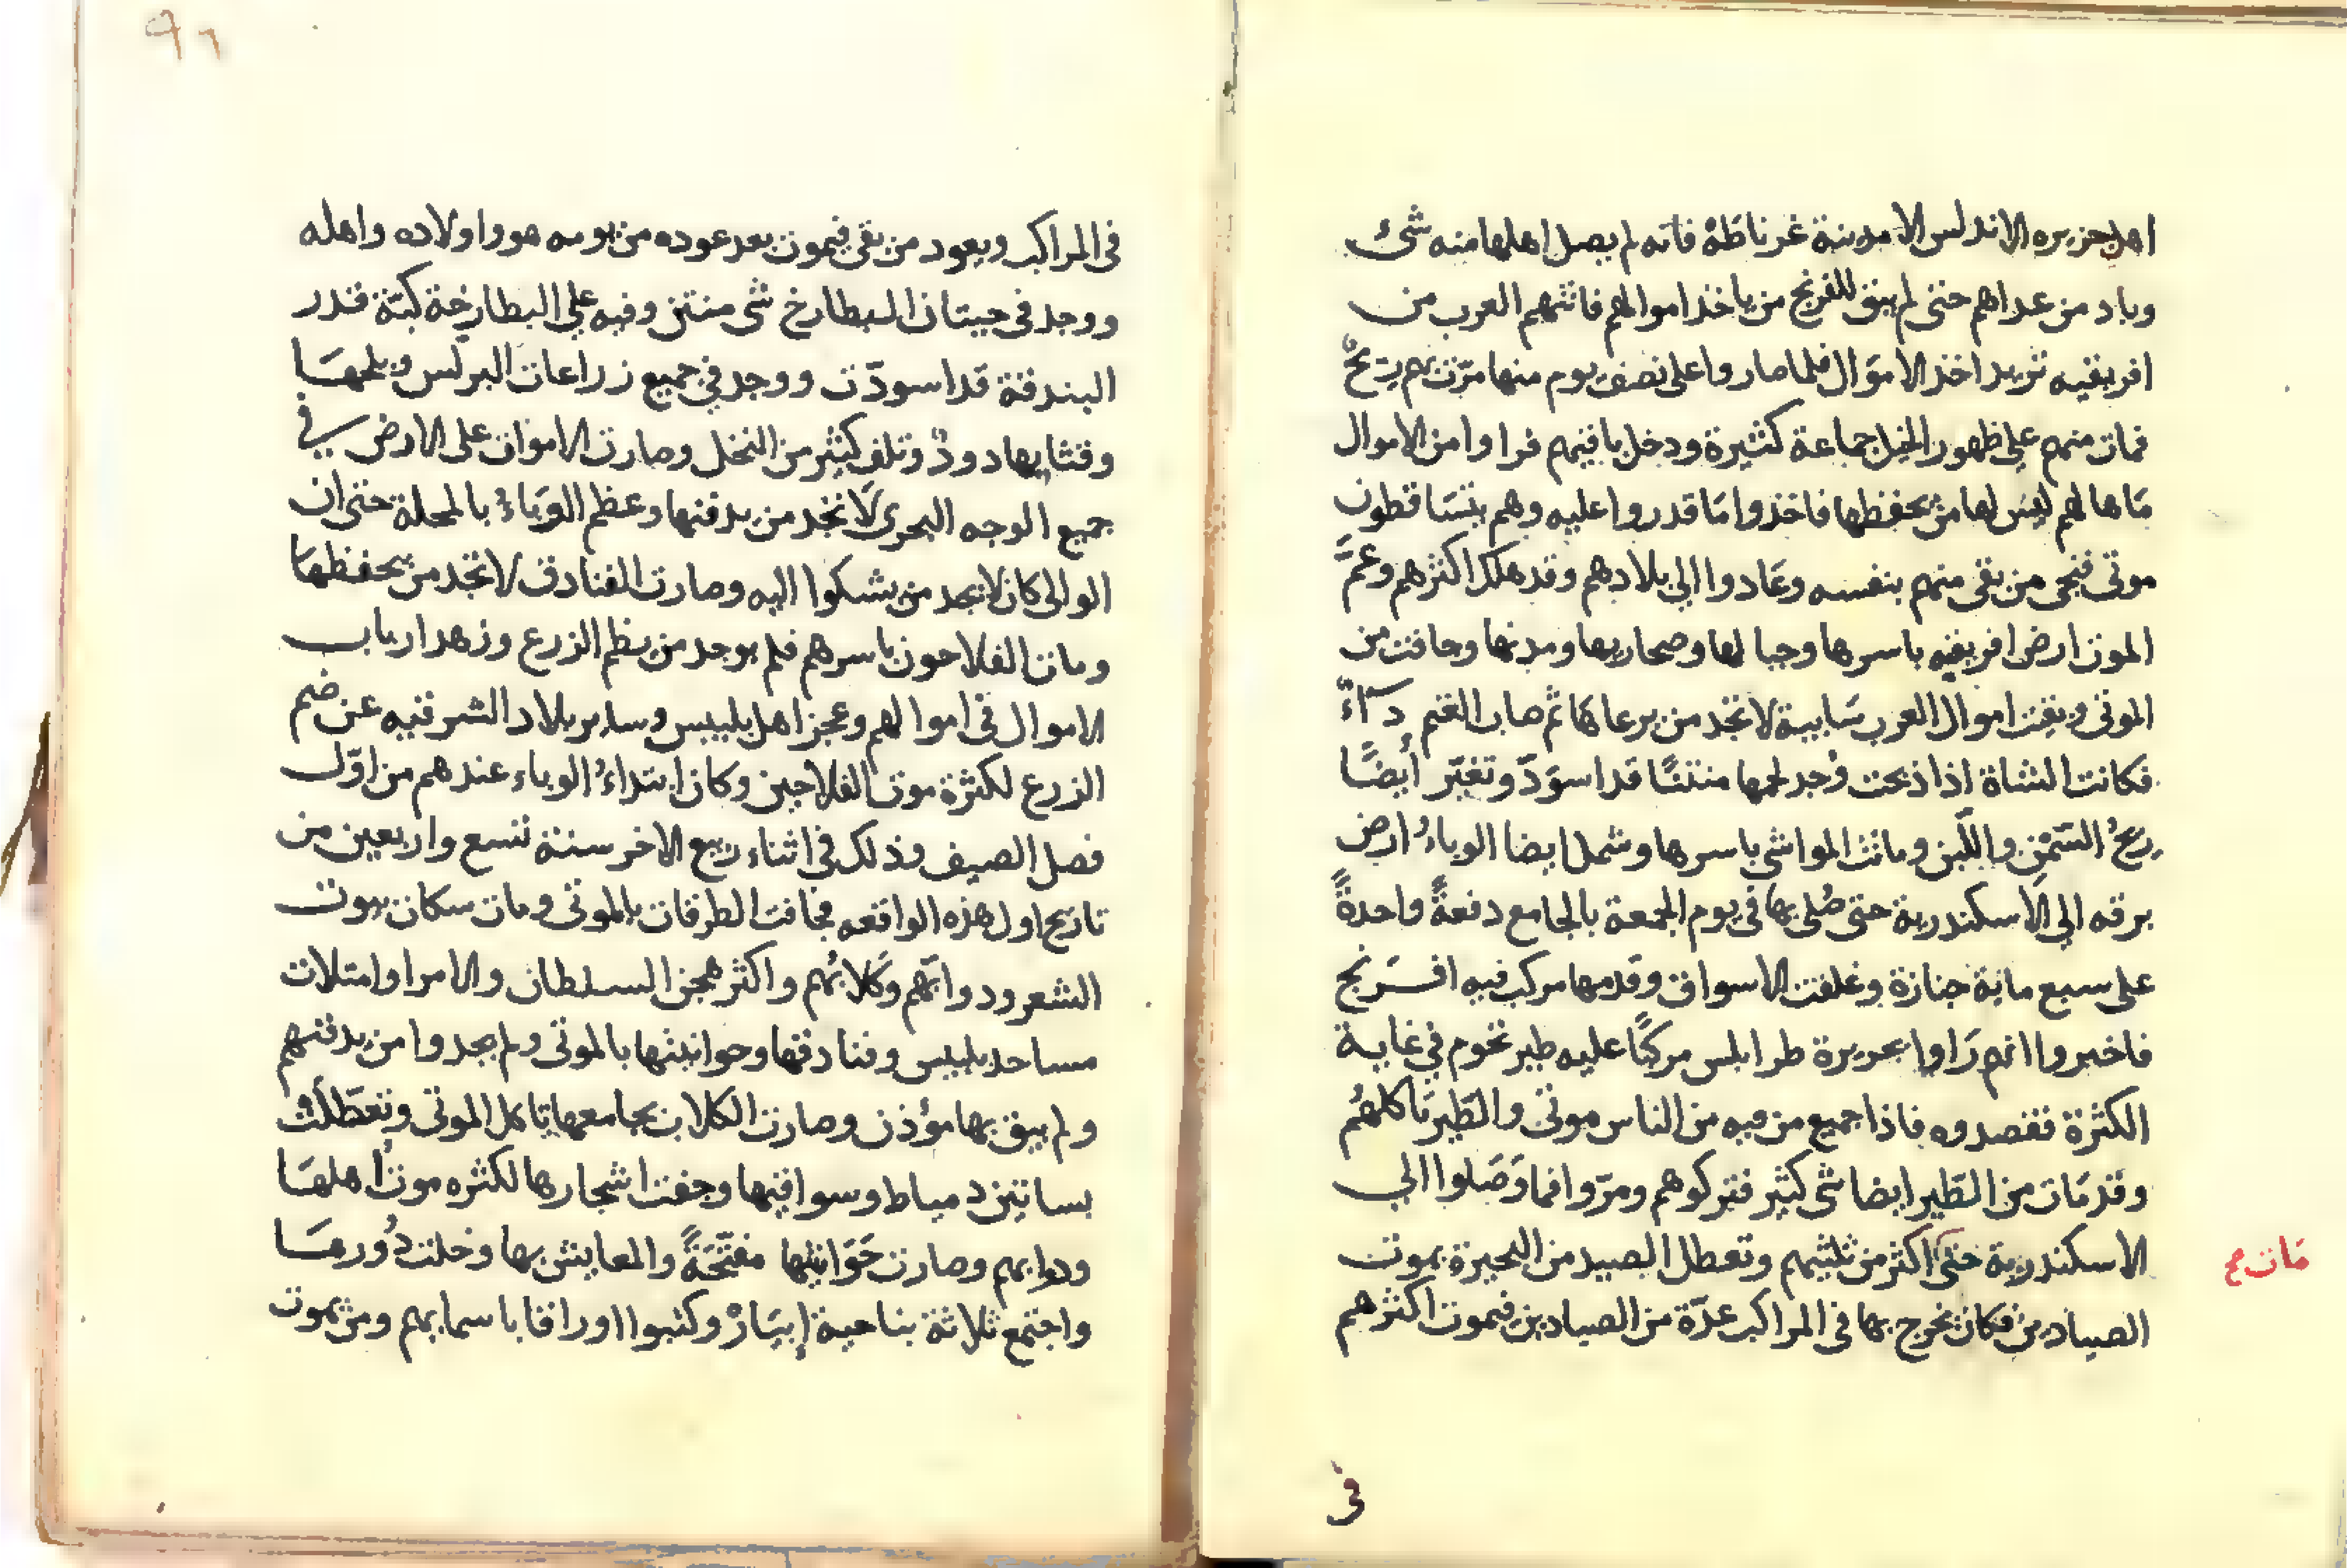 اهل جزيره الاندلس الا مدينة غرناطة فانه لم يصل اهلها منه شئ
وباد من عداهم حتى لم يبق للفرنج من ياخذ اموالهم فاتتهم العرب من
افريقيه تريد اخذ الاموال فلما صاروا على نصف يوم منها مرّت بهم ريحٌ
فمات منهم على ظهور الخيل جماعة كثيرة ودخل باقيهم فراوا من الاموال
مَا هالهم ليس لها من يحفظها فاخذوا مَا قدروا عليه وهم يتسَاقطون
موتى فنجى من بقى منهم بنفسه وعَادوا الى بلادهم وقد هلك اكثرهم وعَمَّ
الموت ارض افريقيه باسرها وجبالها وصحاريها ومدنها وجافت من
الموتى وبقيت اموال العرب سَايبة لا تجد من يرعاها ثم صاب الغنم دآءٌ
فكانت الشاة اذا ذبحت وُجد لحمها منتنًا قد اسوَدّ وتغيّر أيضًا
ريحُ السَّمْن واللّبن وماتت المواشى باسرها وشمل ايضا الوباءُ ارض
برقه الى الاسكندرية حتى صُلى بها فى يوم الجمعة بالجامع دفعةً واحدةً
على سبع ماية جنازة وغلقت الاسواق وقدمها مركب فيه افرنج
فاخبروا انهم رَاوا بجزيرة طرابلس مركبًا عليه طير تحوم في غاية
الكثرة فقصدوه فاذا جميع من فيه من الناس موتى والطّير تاكلهُم
وقد مَات من الطّير ايضا شى كثير فتركوهم ومرّوا فما وَصَلوا الي
الاسكندرية حتى اكثر من ثلثيهم وتعطل الصيد من البحيرة بموت
مَات صح
الصيادين فكان يخرج بها فى المراكب عدّة من الصيادين فيموت اكثرهم
فى
٩٦
فى المراكب ويعود من بقى فيموت بعد عوده من يومه هو واولاده واهله
ووجد فى حيتان البطارخ شى منتن وفيه على البطارخة كبّة قدر
البندقة قد اسودّت ووجد في جميع زراعات البرلس وبلحهَا
وقثايها دودٌ وتلف كثير من النخل وصارت الاموات على الارض في
جميع الوجه البحرى لا تجد من يدفنها وعظم الوَباءُ بالمحلة حتى ان
الوالى كان لا يجد من يشكوا اليه وصارت الفنادق لا تجد من يحفظها
ومات الفلاحون باسرهم فلم يوجد من يظم الزرع وزهد ارباب
الاموال فى اموالهم وعجز اهل بلبيس وساير بلاد الشرقيه عن ضم
الزرع لكثرة موت الفلاحين وكان ابتداءُ الوباء عندهم من اوّل
فصل الصيف وذلك فى اثناء ربيع الاخر سنة تسع واربعين من
تاريخ اول هذه الواقعه فجافت الطرقات بالموتى ومات سكان بيوت
الشعر ودوابّهم وكلابُهم واكثر هجن السلطان والامرا وامتلات
مساجد بلبيس وفنادقها وحوانيتها بالموتى ولم يجدوا من يدفنهم
ولم يبق بها مؤذن وصارت الكلاب بجامعها تاكل الموتى وتعطّلت
بساتين دمياط وسواقيها وجفت اشجارها لكثره موت اهلهَا
ودوابهم وصارت حَوَانيتها مفتّحَةً والمعايش بها وخلت دُورهَا
واجتمع ثلاثة بناحية إبيَارْ وكتبوا اوراقا باسمايهم ومن يموت